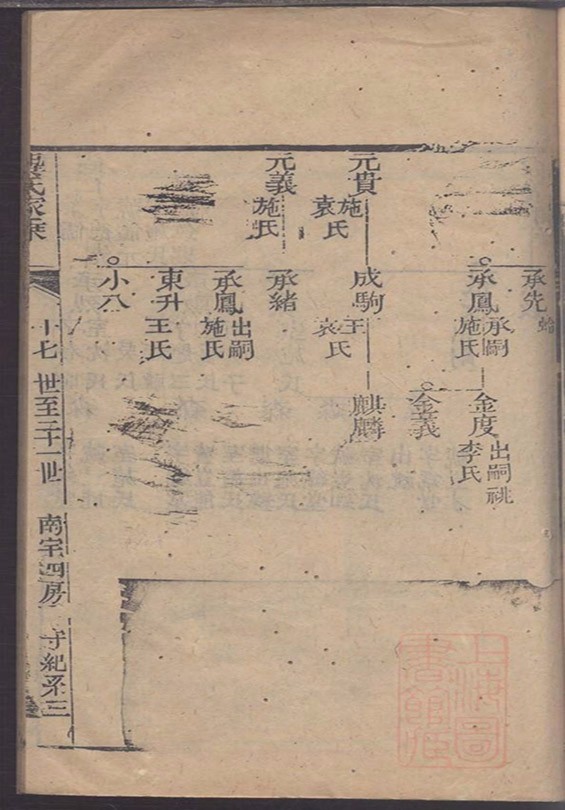 承先
承鳳 承嗣
施氏
金度 出嗣祧
李氏
金義
元貴 施氏
袁氏
成駒 王氏
袁氏
麒麟
元義 施氏
承緒
承鳳 出嗣
施氏
東升 王氏
小八
氏家乘
十七世至二十一世
南宅四房
守紀系三
上海圖書館藏